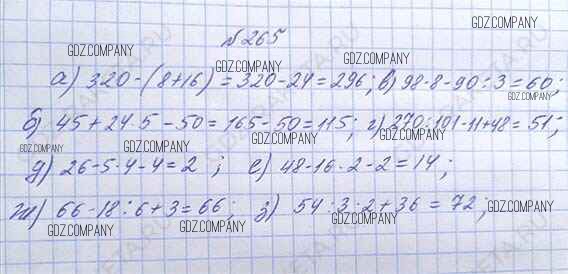 №265
а) 320-(8+16)=320-24=296; в) 98-8-90:3=60;
б) 45+24·5-50=165-50=115; г) 270:101-11+48=51;
д) 26-5·4-4=2; е) 48-16·2-2=14;
ж) 66-18:6+3=66; з) 54:3·2+36=72;
GDZ.COMPANY
GDZ.COMPANY
GDZ.COMPANY
GDZ.COMPANY
GDZ.COMPANY
GDZ.COMPANY
GDZ.COMPANY
GDZ.COMPANY
GDZ.COMPANY
GDZ.COMPANY
GDZ.COMPANY
GDZ.COMPANY
GDZ.COMPANY
GDZ.COMPANY